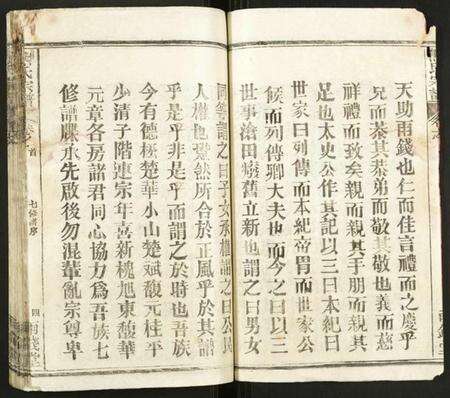 天助雨錢也仁而佳言禮而之慶乎
兄而恭其恭弟而敬其敬也義而慈
祥禮而致矣親而親其乎朋而親其
足也太史公作其記以三曰本紀曰
世家曰列傳而本紀帝胃而世家公
侯而列傳卿大夫也而今之曰以三
世事滄田癈舊立新也謂之曰男女
同等謂之曰子女承權謂之曰公民
人權也
所合於正風乎於其譜
乎是乎非是乎而謂之於時也吾族
今有德
楚華小山楚斌馥元桂平
少清子階連宗年喜新槐旭東馥華
元章各房諸君同心協力為吾族七
修譜牒承先啟後勿混輩亂宗尊卑
氏宗譜
首
七修譜序
四